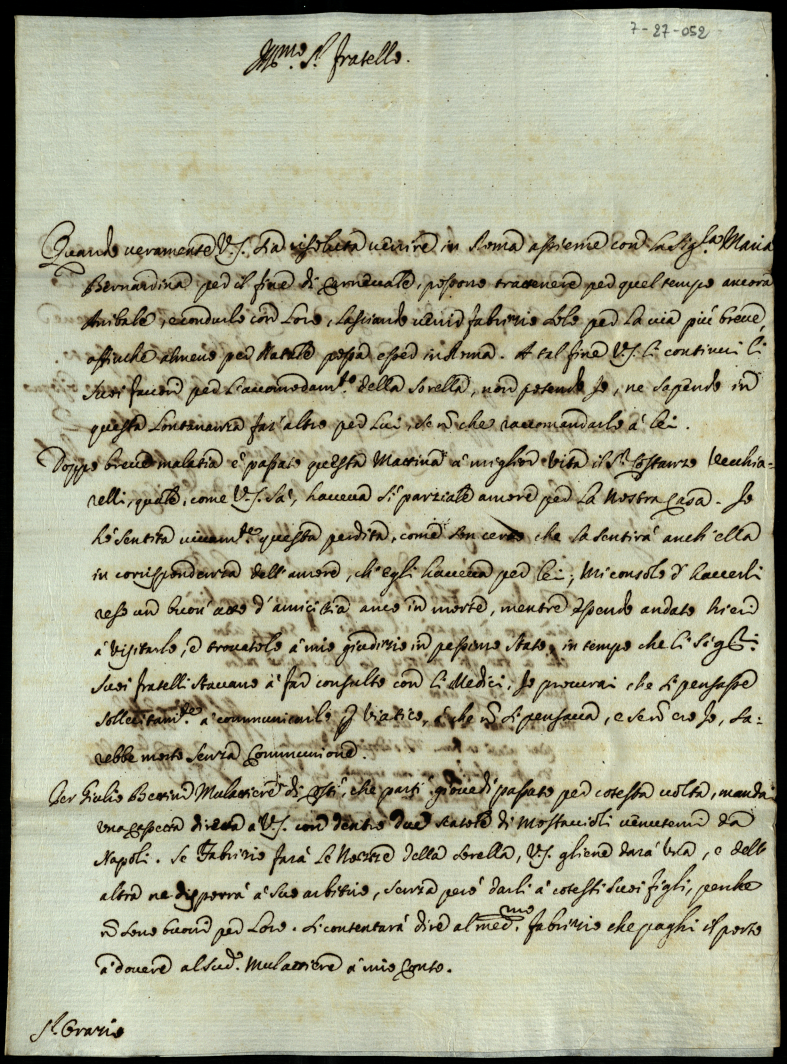 7-27-052
Ill.mo S.r fratello.
Quando veramente V.S. sia risoluta venire in Roma assieme con la Sig.ra Maria
Bernardina per il fine di Carnevale, possono trattenere per quel tempo ancora
Anibale, e condurlo con loro, lasciando venir fabrizio solo per la via più breve,
affinche almeno per Natale possa esser in Roma. A tal fine V.S. li continui li
suoi favori per l'accomodam.to della sorella, non potendo Io, ne sapendo in
questa lontananza far altro per lui, se nõ che raccomandarlo à lei.
Doppo breve malatia è passato questa Mattina à miglior vita il S.r Costanzo Vecchia=
relli, quale, come V.S. sà, haveva sì parziale amore per la Nostra Casa. Io
hò sentita vivam.te questa perdita, come son certo che la sentirà anch'ella
in corrispondenza dell'amore, ch'egli haveva per lei; mi consolo d'haverli
reso un buon'atto d'amicitia anco in morte, mentre essendo andato hieri
à visitarlo, e trovatolo à mio giudizio in pessimo stato, in tempo che li Sig.ri
suoi fratelli stavano à far consulto con li Medici, Io procurai che si pensasse
sollecitam.te à communicarlo p Viatico, à che nõ si pensava, e se nõ ero Io, sa=
rebbe morto senza Communione.
Per Giulio Mulattiere di costì, che partì giovedì passato per cotesta volta, mandai
una cassetta diretta à V.S. con dentro due scatole di Mostaccioli venutemi da
Napoli. Se Fabrizio farà le Nozze della sorella, V.S. gliene darà una, e dell'
altra ne disporrà à suo arbitrio, senza però darli à cotesti suoi figli, perche
nõ sono buoni per loro. Si contentarà dire al med.mo fabrizio che paghi il porto
à dovere al sud.o Mulattiere à mio conto.
S.r Orazio